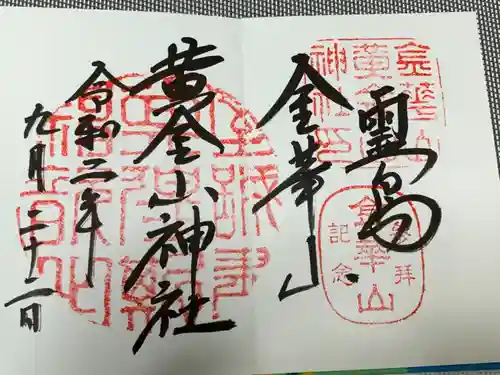 霊島
金華山
黄金山神社
令和二年
九月二十二日
金華山
黄金山
神社印
参拝
金華山
記念